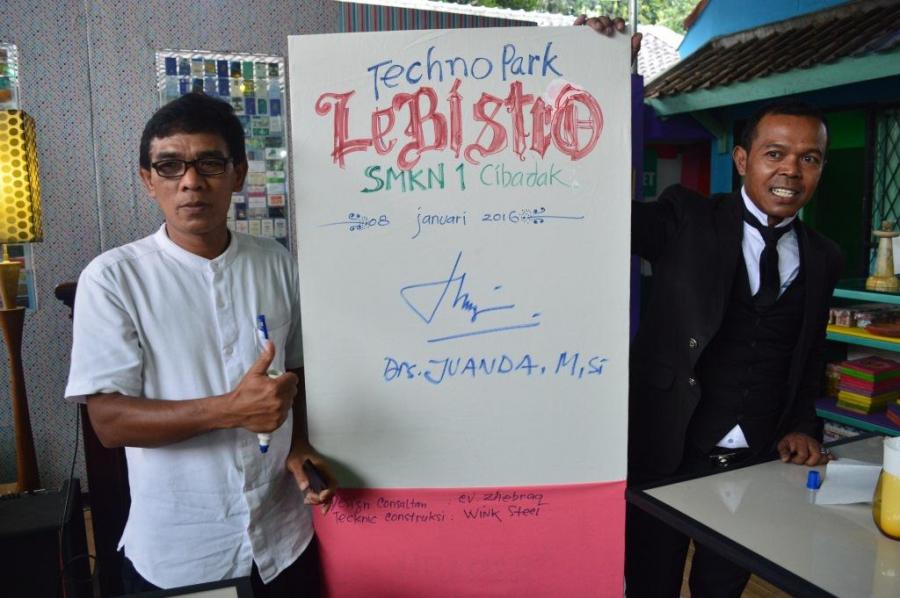 Techno Park
LeBistrO
SMKN 1 Cibadak
08 januari 2016
Drs. JUANDA, M,Si
Consaltan : ev. zhebraq
Tecknic Construksi : Wink Steel